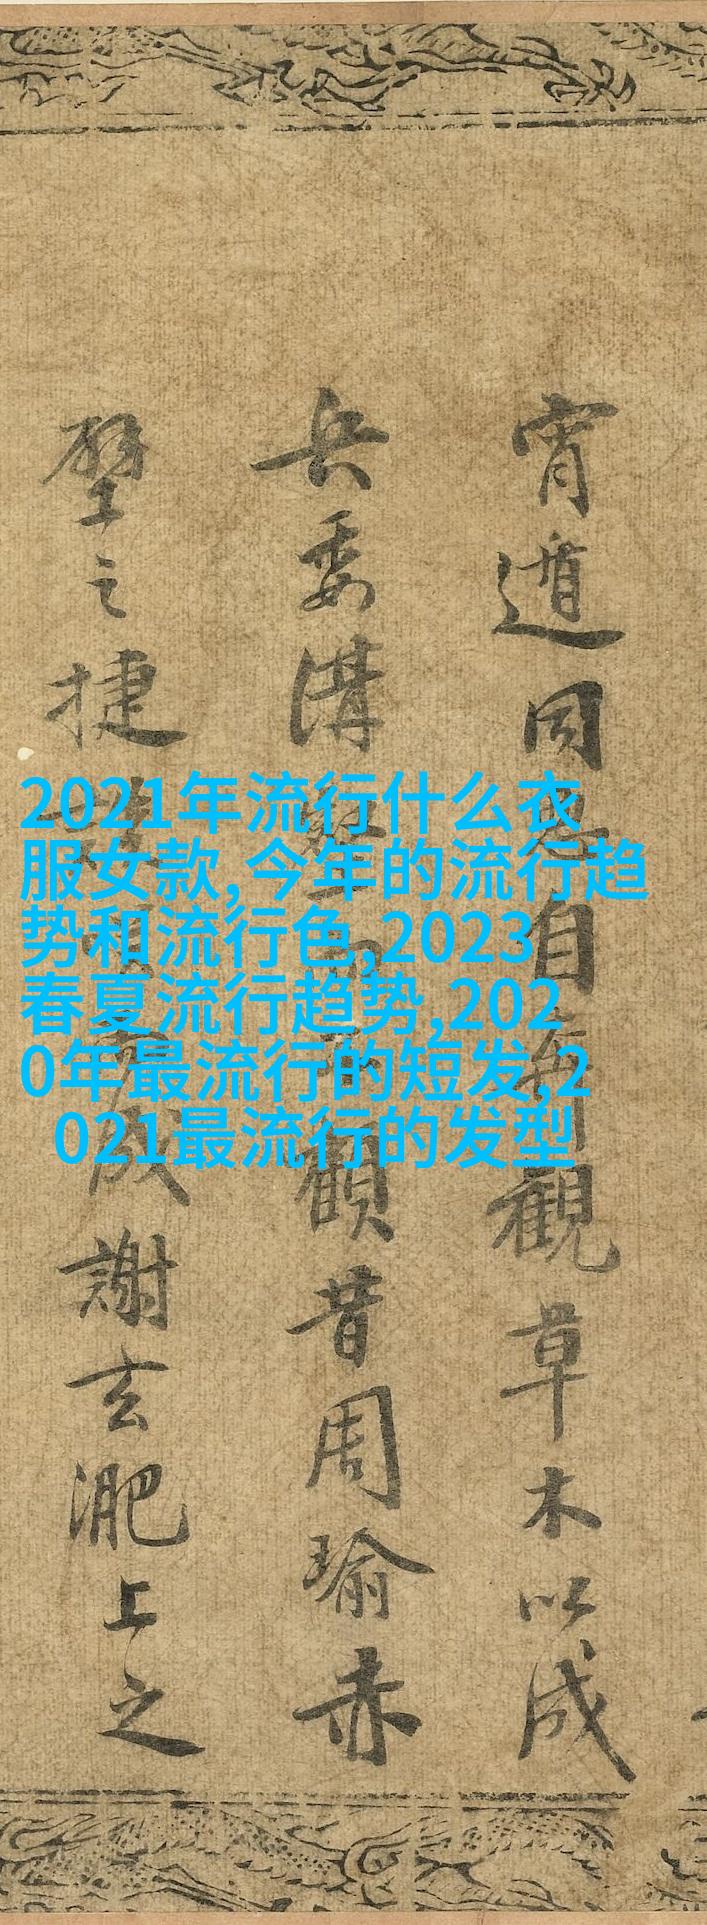 2021年流行什么衣
服女款,今年的流行趋
势和流行色,2023
春夏流行趋势,202
0年最流行的短发,2
021最流行的发型
宵遁同自觀草木以成
兵委溝顧昔周瑜赤
壁之捷成謝玄淝上之